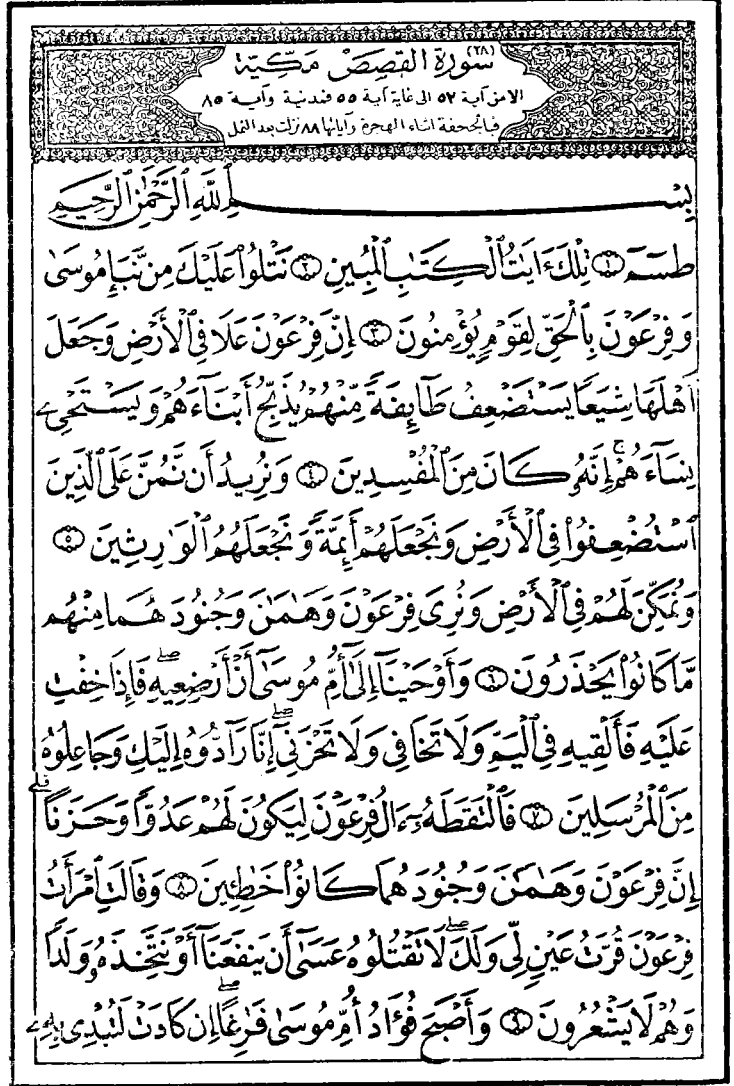 (٢٨) سُورَة القَصَصِ مَكِّيَّة
الا من آية ٥٢ الى غاية آية ٥٥ فمدنية وآية ٨٥
فبالجحفة اثناء الهجرة وآياتها ٨٨ نزلت بعد النمل
بِسْمِ ٱللَّهِ ٱلرَّحْمَٰنِ ٱلرَّحِيمِ
طسٓمٓ ۝١ تِلْكَ ءَايَٰتُ ٱلْكِتَٰبِ ٱلْمُبِينِ ۝٢ نَتْلُوا۟ عَلَيْكَ مِن نَّبَإِ مُوسَىٰ
وَفِرْعَوْنَ بِٱلْحَقِّ لِقَوْمٍ يُؤْمِنُونَ ۝٣ إِنَّ فِرْعَوْنَ عَلَا فِى ٱلْأَرْضِ وَجَعَلَ
أَهْلَهَا شِيَعًا يَسْتَضْعِفُ طَآئِفَةً مِّنْهُمْ يُذَبِّحُ أَبْنَآءَهُمْ وَيَسْتَحْىِۦ
نِسَآءَهُمْ ۚ إِنَّهُۥ كَانَ مِنَ ٱلْمُفْسِدِينَ ۝٤ وَنُرِيدُ أَن نَّمُنَّ عَلَى ٱلَّذِينَ
ٱسْتُضْعِفُوا۟ فِى ٱلْأَرْضِ وَنَجْعَلَهُمْ أَئِمَّةً وَنَجْعَلَهُمُ ٱلْوَٰرِثِينَ ۝٥
وَنُمَكِّنَ لَهُمْ فِى ٱلْأَرْضِ وَنُرِىَ فِرْعَوْنَ وَهَٰمَٰنَ وَجُنُودَهُمَا مِنْهُم
مَّا كَانُوا۟ يَحْذَرُونَ ۝٦ وَأَوْحَيْنَآ إِلَىٰٓ أُمِّ مُوسَىٰٓ أَنْ أَرْضِعِيهِ ۖ فَإِذَا خِفْتِ
عَلَيْهِ فَأَلْقِيهِ فِى ٱلْيَمِّ وَلَا تَخَافِى وَلَا تَحْزَنِىٓ ۖ إِنَّا رَآدُّوهُ إِلَيْكِ وَجَاعِلُوهُ
مِنَ ٱلْمُرْسَلِينَ ۝٧ فَٱلْتَقَطَهُۥٓ ءَالُ فِرْعَوْنَ لِيَكُونَ لَهُمْ عَدُوًّا وَحَزَنًا ۗ
إِنَّ فِرْعَوْنَ وَهَٰمَٰنَ وَجُنُودَهُمَا كَانُوا۟ خَٰطِـِٔينَ ۝٨ وَقَالَتِ ٱمْرَأَتُ
فِرْعَوْنَ قُرَّتُ عَيْنٍ لِّى وَلَكَ ۖ لَا تَقْتُلُوهُ عَسَىٰٓ أَن يَنفَعَنَآ أَوْ نَتَّخِذَهُۥ وَلَدًا
وَهُمْ لَا يَشْعُرُونَ ۝٩ وَأَصْبَحَ فُؤَادُ أُمِّ مُوسَىٰ فَٰرِغًا ۖ إِن كَادَتْ لَتُبْدِى بِهِۦ